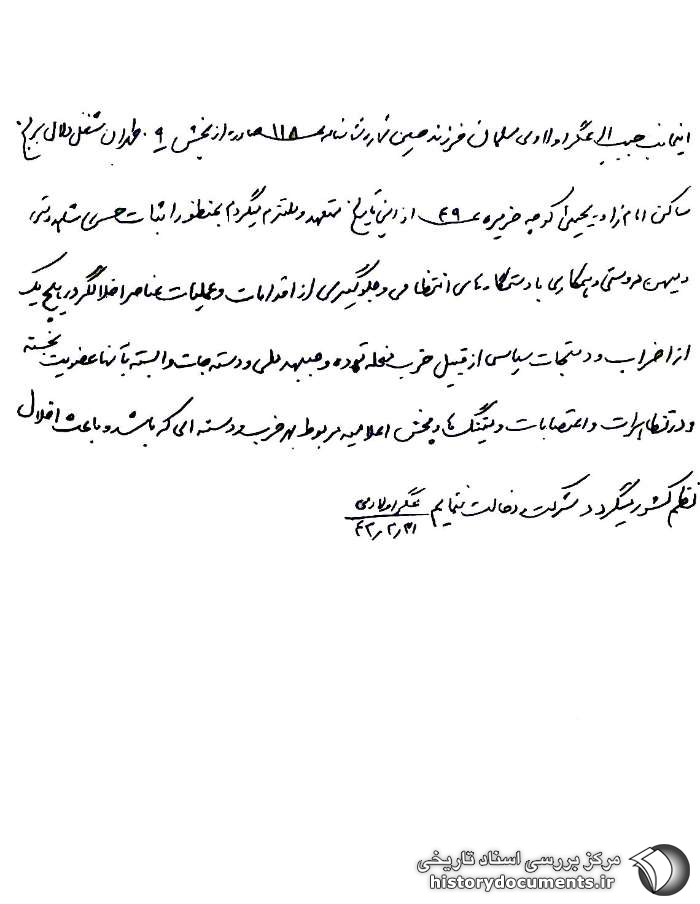 اینجانب حبیب اله عسگراولادی مسلمان فرزند حسین شماره شناسنامه ۱۱۸ صادره از بخش ۹ طهران شغل دلال برنج
ساکن امام زاده یحیی کوچه ۴۹ از این تاریخ متعهد و ملتزم میگردم بمنظور اثبات حس شاهدوستی
و میهن دوستی و همکاری با دستگاههای انتظامی و جلوگیری از اقدامات و عملیات عناصر اخلالگر در هیچ یک
از احزاب و دستجات سیاسی از قبیل حزب منحله توده و جبهه ملی و دسته جات وابسته بآنها عضویت نجسته
و در تظاهرات و اعتصابات و میتینگ ها و پخش اعلامیه مربوط بهر حزب و دسته ای که باشد و باعث اخلال
نظم کشور میگردد شرکت و دخالت ننمایم عسگراولادی
۴۲/۲/۳۱
مرکز بررسی اسناد تاریخی
historydocuments.ir